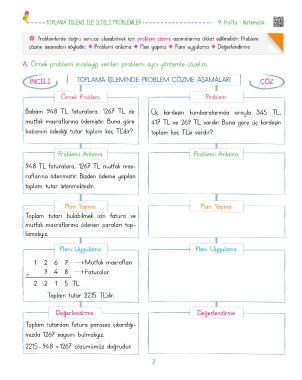 TOPLAMA İŞLEMİ İLE İLGİLİ PROBLEMLER
9. Hafta - Matematik
Problemlerde doğru sonuca ulaşabilmek için problem çözme aşamalarına dikkat edilmelidir. Problem
çözme aşamaları şöyledir: Problemi anlama Plan yapma Planı uygulama Değerlendirme
A. Örnek problemi inceleyip verilen problemi aynı yöntemle çözelim.
İNCELE
TOPLAMA İŞLEMİNDE PROBLEM ÇÖZME AŞAMALARI
ÇÖZ
Örnek Problem
Babam 948 TL faturalara, 1267 TL de
mutfak masraflarına ödemiştir. Buna göre
babamın ödediği tutar toplam kaç TL'dir?
Problem
Üç kardeşin kumbaralarında sırayla 345 TL,
417 TL ve 269 TL vardır. Buna göre üç kardeşin
toplam kaç TL'si vardır?
Problemi Anlama
948 TL faturalara, 1267 TL mutfak mas-
raflarına ödenmiştir. Bizden ödeme yapılan
toplam tutar istenmektedir.
Problemi Anlama
Plan Yapma
Toplam tutarı bulabilmek için fatura ve
mutfak masraflarına ödenen paraları top-
lamalıyız.
Plan Yapma
Planı Uygulama
1 2 6 7 → Mutfak masrafları
+ 9 4 8 → Faturalar
2 2 1 5 TL
Toplam tutar 2215 TL'dir.
Planı Uygulama
Değerlendirme
Toplam tutardan fatura parasını çıkardığı-
mızda 1267 sayısını bulmalıyız.
2215 - 948 = 1267 çözümümüz doğrudur.
Değerlendirme
7